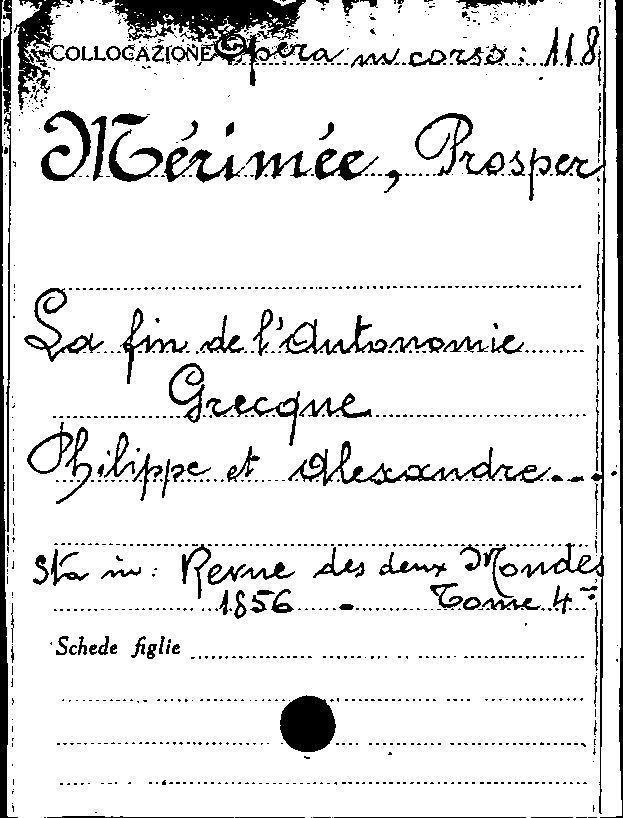 COLLOCAZIONE Opera in corso: 118
Mérimée, Prosper
La fin de l'Autonomie
Grecque
Philippe et Alexandre....
Sta in: Revue des deux Mondes
1856 - Tome 4º
Schede figlie